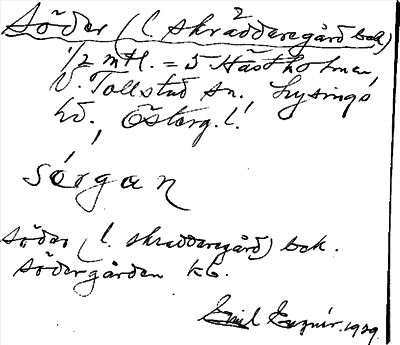 Söder (l. skräddaregård bek.)
1/2 mtl. = 5 Hästholmen,
V. Tollstad sn. Lysings
hd., Österg. l.
sérgan
söder (l. skraddaregård) bek.
södergården kb.
Emil 1929.